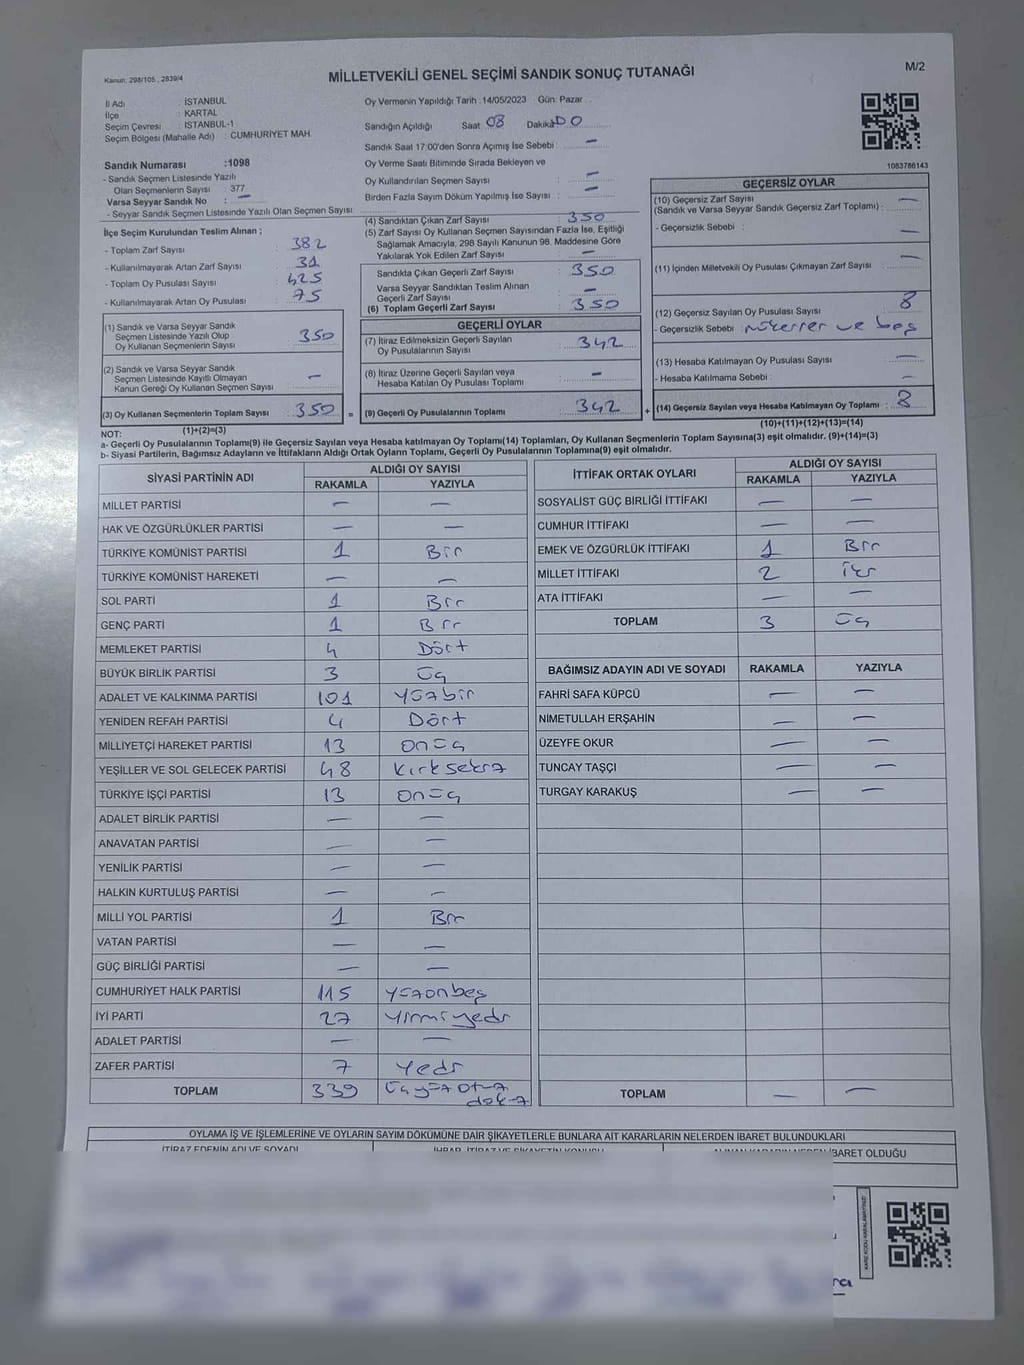 Kanun, 298/105 , 2839/4
MİLLETVEKİLİ GENEL SEÇİMİ SANDIK SONUÇ TUTANAĞI
M/2
İl Adı : İSTANBUL
İlçe : KARTAL
Seçim Çevresi : İSTANBUL-1
Seçim Bölgesi (Mahalle Adı) : CUMHURİYET MAH
Oy Vermenin Yapıldığı Tarih :14/05/2023 Gün: Pazar
Sandığın Açıldığı Saat 08 Dakika
Sandık Saat 17:00'den Sonra Açımış İse Sebebi : –
Oy Verme Saati Bitiminde Sırada Bekleyen ve
Oy Kullandırılan Seçmen Sayısı : –
Birden Fazla Sayım Döküm Yapılmış İse Sayısı : –
1083786143
Sandık Numarası :1098
- Sandık Seçmen Listesinde Yazılı
Olan Seçmenlerin Sayısı : 377
Varsa Seyyar Sandık No : –
- Seyyar Sandık Seçmen Listesinde Yazılı Olan Seçmen Sayısı
İlçe Seçim Kurulundan Teslim Alınan ;
- Toplam Zarf Sayısı : 382
- Kullanılmayarak Artan Zarf Sayısı : 31
- Toplam Oy Pusulası Sayısı : 425
- Kullanılmayarak Artan Oy Pusulası : 75
(1) Sandık ve Varsa Seyyar Sandık
Seçmen Listesinde Yazılı Olup
Oy Kullanan Seçmenlerin Sayısı : 350
(2) Sandık ve Varsa Seyyar Sandık
Seçmen Listesinde Kayıtlı Olmayan
Kanun Gereği Oy Kullanan Seçmen Sayısı : –
(3) Oy Kullanan Seçmenlerin Toplam Sayısı : 350 =
(1)+(2)=(3)
(4) Sandıktan Çıkan Zarf Sayısı : 350
(5) Zarf Sayısı Oy Kullanan Seçmen Sayısından Fazla İse, Eşitliği
Sağlamak Amacıyla, 298 Sayılı Kanunun 98. Maddesine Göre
Yakılarak Yok Edilen Zarf Sayısı : –
Sandıkta Çıkan Geçerli Zarf Sayısı : 350
Varsa Seyyar Sandıktan Teslim Alınan
Geçerli Zarf Sayısı : –
(6) Toplam Geçerli Zarf Sayısı : 350
GEÇERLİ OYLAR
(7) İtiraz Edilmeksizin Geçerli Sayılan
Oy Pusulalarının Sayısı : 342
(8) İtiraz Üzerine Geçerli Sayılan veya
Hesaba Katılan Oy Pusulası Toplamı : –
(9) Geçerli Oy Pusulalarının Toplamı : 342 +
GEÇERSİZ OYLAR
(10) Geçersiz Zarf Sayısı
(Sandık ve Varsa Seyyar Sandık Geçersiz Zarf Toplamı) : –
- Geçersizlik Sebebi : –
(11) İçinden Milletvekili Oy Pusulası Çıkmayan Zarf Sayısı : –
(12) Geçersiz Sayılan Oy Pusulası Sayısı : 8
- Geçersizlik Sebebi : mükerrer ve boş
(13) Hesaba Katılmayan Oy Pusulası Sayısı : –
- Hesaba Katılmama Sebebi : –
(14) Geçersiz Sayılan veya Hesaba Katılmayan Oy Toplamı : 8
(10)+(11)+(12)+(13)=(14)
NOT:
a- Geçerli Oy Pusulalarının Toplamı(9) ile Geçersiz Sayılan veya Hesaba katılmayan Oy Toplamı(14) Toplamları, Oy Kullanan Seçmenlerin Toplam Sayısına(3) eşit olmalıdır. (9)+(14)=(3)
b- Siyasi Partilerin, Bağımsız Adayların ve İttifakların Aldığı Ortak Oyların Toplamı, Geçerli Oy Pusulalarının Toplamına(9) eşit olmalıdır.
SİYASİ PARTİNİN ADI ALDIĞI OY SAYISI
RAKAMLA YAZIYLA
MİLLET PARTİSİ – –
HAK VE ÖZGÜRLÜKLER PARTİSİ – –
TÜRKİYE KOMÜNİST PARTİSİ 1 Bir
TÜRKİYE KOMÜNİST HAREKETİ – –
SOL PARTİ 1 Bir
GENÇ PARTİ 1 Bir
MEMLEKET PARTİSİ 4 Dört
BÜYÜK BİRLİK PARTİSİ 3 Üç
ADALET VE KALKINMA PARTİSİ 101 Yüzbir
YENİDEN REFAH PARTİSİ 4 Dört
MİLLİYETÇİ HAREKET PARTİSİ 13 Onüç
YEŞİLLER VE SOL GELECEK PARTİSİ 48 Kırksekiz
TÜRKİYE İŞÇİ PARTİSİ 13 Onüç
ADALET BİRLİK PARTİSİ – –
ANAVATAN PARTİSİ – –
YENİLİK PARTİSİ – –
HALKIN KURTULUŞ PARTİSİ – –
MİLLİ YOL PARTİSİ 1 Bir
VATAN PARTİSİ – –
GÜÇ BİRLİĞİ PARTİSİ – –
CUMHURİYET HALK PARTİSİ 115 Yüzonbeş
İYİ PARTİ 27 Yirmiyedi
ADALET PARTİSİ – –
ZAFER PARTİSİ 7 Yedi
TOPLAM 339 Üçyüz otuz
dokuz
İTTİFAK ORTAK OYLARI ALDIĞI OY SAYISI
RAKAMLA YAZIYLA
SOSYALİST GÜÇ BİRLİĞİ İTTİFAKI – –
CUMHUR İTTİFAKI – –
EMEK VE ÖZGÜRLÜK İTTİFAKI 1 Bir
MİLLET İTTİFAKI 2 İki
ATA İTTİFAKI – –
TOPLAM 3 Üç
BAĞIMSIZ ADAYIN ADI VE SOYADI RAKAMLA YAZIYLA
FAHRİ SAFA KÜPCÜ – –
NİMETULLAH ERŞAHİN – –
ÜZEYFE OKUR – –
TUNCAY TAŞÇI – –
TURGAY KARAKUŞ – –
TOPLAM – –
OYLAMA İŞ VE İŞLEMLERİNE VE OYLARIN SAYIM DÖKÜMÜNE DAİR ŞİKAYETLERLE BUNLARA AİT KARARLARIN NELERDEN İBARET BULUNDUKLARI
İTİRAZ EDENİN ADI VE SOYADI
İHBAR, İTİRAZ VE ŞİKAYETİN KONUSU
İBARET OLDUĞU
KARE KODU KARALAMAYINIZ!